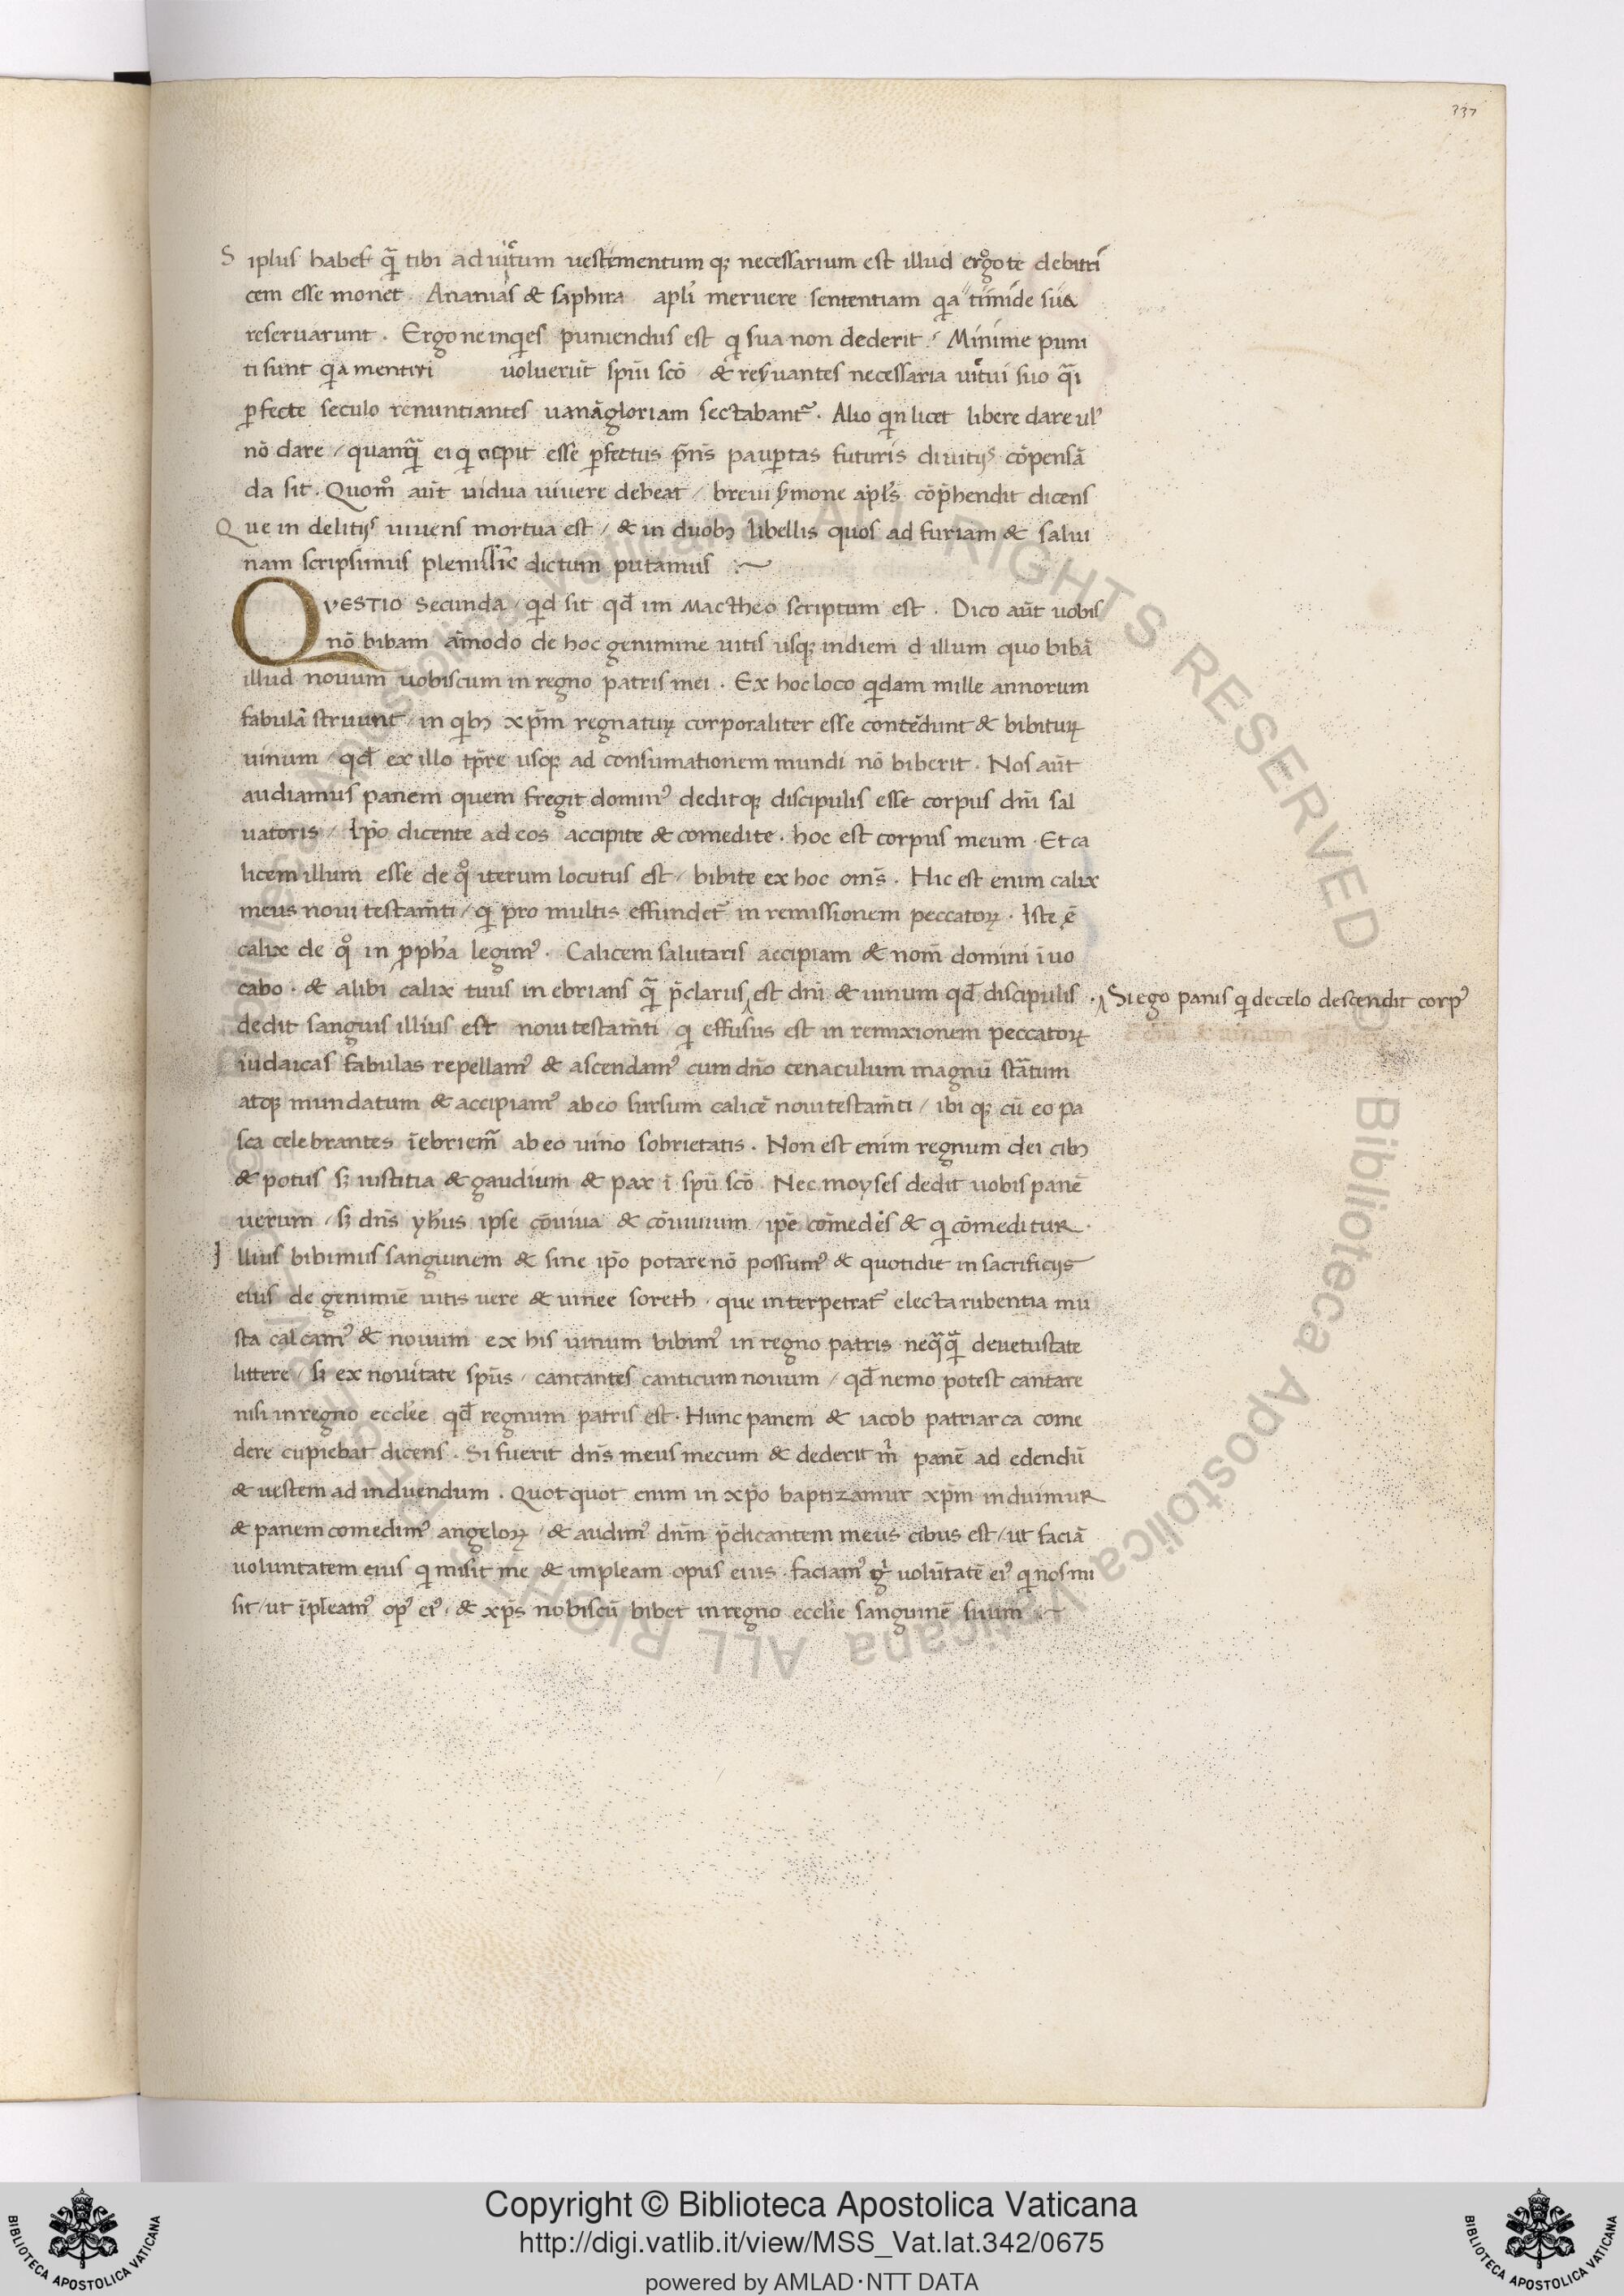 337
Siplus habes q̄ tibi ad uictum uestimentum qꝫ necessarium est illud ergo te debitri
cem esse monet . Ananias & saphira apl̄i meruere sententiam qia timide sua
reseruarunt . Ergo ne inqies puniendus est qi sua non dederit ? Minime puni
ti sunt qia mentiri uoluerūt spiū scō & reẜuantes necessaria uictui suo q̄i
ꝑfecte seculo renuntiantes uanāgloriam sectabant᷑ . Alio qin licet libere dare ul᾿
nō dare / quanq̄ ei qi cepit esse ꝑfectus p̄ns pauꝑtas futuris diuitijs cōpensā
da sit . Quomͦ aūt uidua uiuere debeat / breui ẜmone apl̄s cōp̄hendit dicens
Que in delitijs uiuens mortua est / & in duobꝫ libellis quos ad furiam & salui
nam scripsimus plenissīe dictum putamus :~
QVESTIO Secunda / qid sit qd̄ im Mactheo scriptum est . Dico aūt uobis
nō bibam āmodo de hoc genimine uitis usqꝫ indiem d illum quo bibā
illud nouum uobiscum in regno patris mei . Ex hoc loco qidam mille annorum
fabulā struunt / in qibꝫ xp̄m regnaturꝝ corporaliter esse contēdunt & bibiturꝝ
uinum / qd̄ ex illo tp̄re usqꝫ ad consumationem mundi nō biberit . Nos aūt
audiamus panem quem fregit dominꝰ deditqꝫ discipulis esse corpus dn̄i sal
uatoris / Ip̄o dicente ad eos accipite & comedite . hoc est corpus meum . Et ca
licem illum esse de qͦ iterum locutus est / bibite ex hoc om̄s . Hic est enim calix
meus noui testam̄ti / qi pro multis effundet᷑ in remissionem peccatorꝝ . Iste ē
calix de qͦ in ꝓph̄a legimꝰ . Calicem salutaris accipiam & nom̄ domini īuo
cabo . & alibi calix tuus in ebrians q̄ p̄clarus est dn̄i & uinum qd̄ discipulis .
Si ego panis qi de celo descendit corpꝰ
dedit sanguis illius est noui testam̄ti qi effusus est in remixionem peccatorꝝ
iudaicas fabulas repellamꝰ & ascendamꝰ cum dn̄o cenaculum magnū strātum
atqꝫ mundatum & accipiamꝰ ab eo sursum calicē noui testam̄ti / ibi qꝫ cū eo pa
sca celebrantes īebriem᷑ ab eo uino sobrietatis . Non est enim regnum dei cibꝫ
& potus sꝫ iustitia & gaudium & pax ī spū scō . Nec moyses dedit uobis panē
uerum / sꝫ dn̄s yh̄us ipse cōuiua & cōuiuium / ip̄e cōmedēs & qi cōmeditur .
Illius bibimus sanguinem & sine ip̄o potare nō possumꝰ & quotidie in sacrificijs
eius de genimīe uitis uere & uinee soreth . que interpetrat᷑ electa rubentia mu
sta calcamꝰ & nouum ex his uinum bibimꝰ in regno patris neq̄q̄ deuetustate
littere / sꝫ ex nouitate spūs / cantantes canticum nouum / qd̄ nemo potest cantare
nisi in regno eccl̄ee qd̄ regnum patris est . Hunc panem & iacob patriarca come
dere cupiebat dicens . Si fuerit dn̄s meus mecum & dederit m̄ panē ad edendū
& uestem ad induendum . Quotquot enim in xp̄o baptizamur xp̄m induimur
& panem comedimꝰ angelorꝝ / & audimꝰ dn̄m p̄dicantem meus cibus est / ut faciā
uoluntatem eius qi misit me & impleam opus eius . faciamꝰ gͥ uolūtatē eiꝰ qi nos mi
sit / ut īpleamꝰ opꝰ eiꝰ / & xp̄s nobiscū bibet in regno eccl̄ie sanguinē suum :~
Copyright © Biblioteca Apostolica Vaticana
http://digi.vatlib.it/view/MSS_Vat.lat.342/0675
powered by AMLAD·NTT DATA
BIBLIOTECA APOSTOLICA VATICANA
BIBLIOTECA APOSTOLICA VATICANA